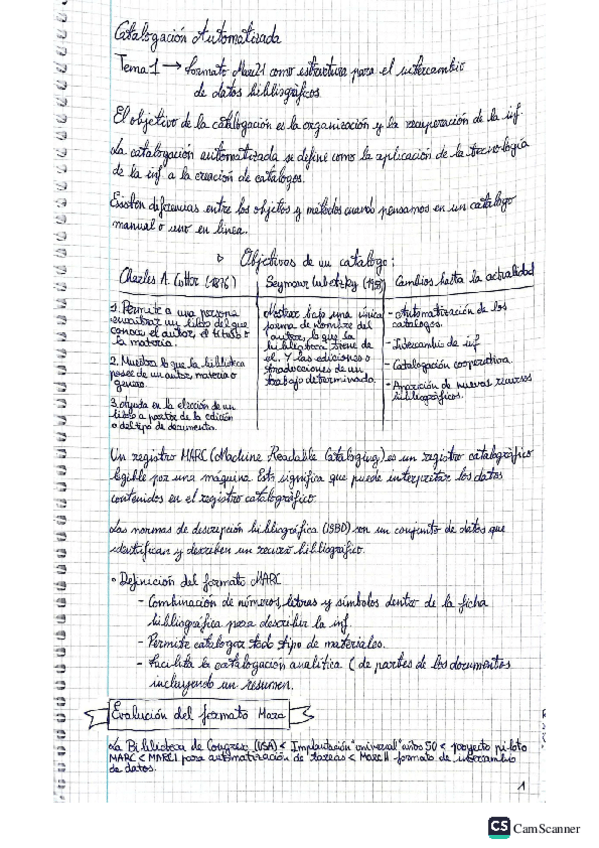 Catalogación Automatizada
Tema 1 → Formato Marc21 como estructura para el intercambio
de datos bibliográficos.
El objetivo de la catalogación es la organización y la recuperación de la inf.
La catalogación automatizada se define como la aplicación de la tecnología
de la inf a la creación de catálogos.
Existen diferencias entre los objetos y métodos cuando pensamos en un catálogo
manual o uno en línea.
▷ Objetivos de un catálogo:
Charles A. Cutter (1876)
1. Permite a una persona
encontrar un libro del que
conoce el autor, el título o
la materia.
2. Muestra lo que la biblioteca
posee de un autor, materia o
genero.
3. Ayuda en la elección de un
libro a partir de la edición
o del tipo de documento.
Seymour Lubetzky
Mostrar bajo una única
forma de nombre del
autor, lo que la
biblioteca tiene de
él. Y las ediciones o
traducciones de un
trabajo determinado.
Cambios hasta la actualidad
- Automatización de los
catálogos.
- Intercambio de inf
- Catalogación cooperativa.
- Aparición de nuevos recursos
bibliográficos.
Un registro MARC (Machine Readable Cataloging) es un registro catalográfico
legible por una máquina. Esto significa que puede interpretar los datos
contenidos en el registro catalográfico.
Las normas de descripción bibliográfica (ISBD) son un conjunto de datos que
identifican y describen un recurso bibliográfico.
• Definición del formato MARC
- Combinación de números, letras y símbolos dentro de la ficha
bibliográfica para describir la inf.
- Permite catalogar todo tipo de materiales.
- Facilita la catalogación analítica (de partes de los documentos
incluyendo un resumen.
Evolución del formato Marc
La Biblioteca de Congreso (USA) < Implantación "universal" años 50 < proyecto piloto
MARC < MARC I para automatización de tareas < MARC II formato de intercambio
de datos.
1
CS CamScanner